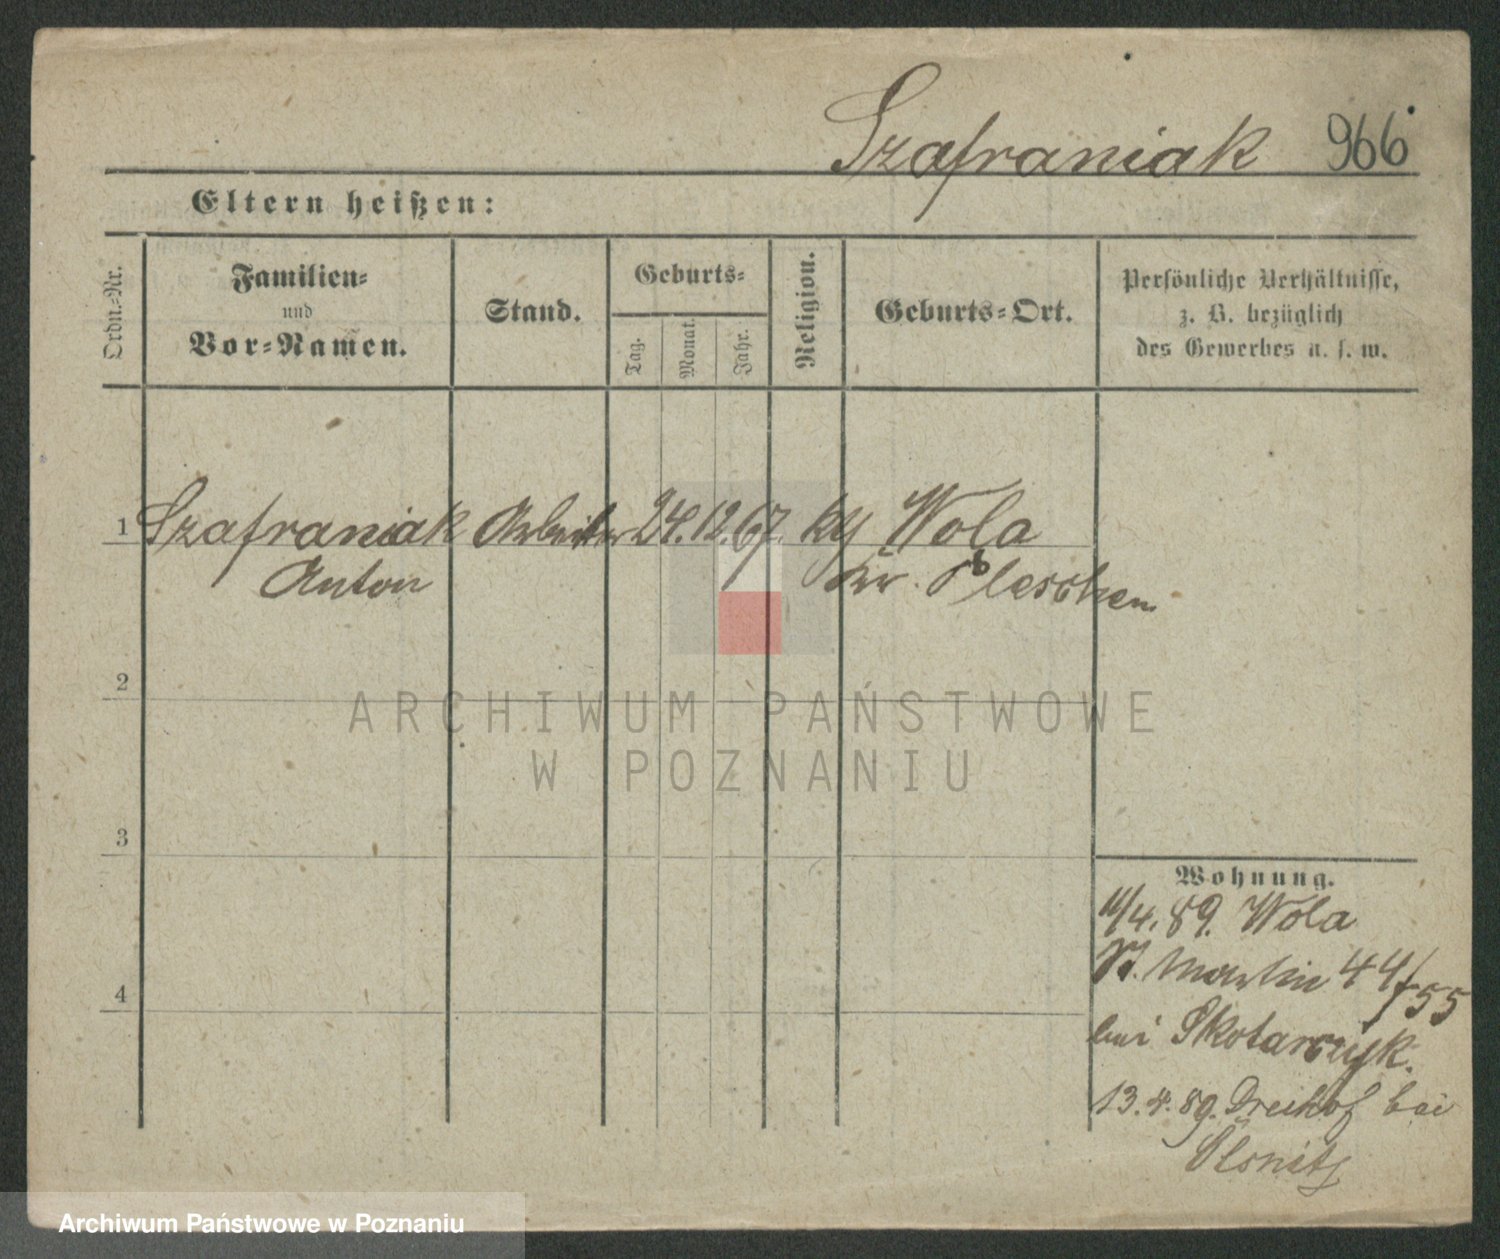 Szafraniak 966
Eltern heißen:
Ordn.-Nr.
Familien-
und
Vor-Namen.
Stand.
Geburts-
Tag.
Monat.
Jahr.
Religion.
Geburts-Ort.
Persönliche Verhältnisse,
z. B. bezüglich
des Gewerbes u. s. w.
1 Szafraniak Arbeiter 24. 12. 67. Wola
Anton Kr. Pleschen
2
3
4
Wohnung.
11/4. 89. Wola
St. Martin 44/55
bei Skotarczyk.
13. 4. 89. Dreihof bei
Ölsnitz
ARCHIWUM PAŃSTWOWE
W POZNANIU
Archiwum Państwowe w Poznaniu